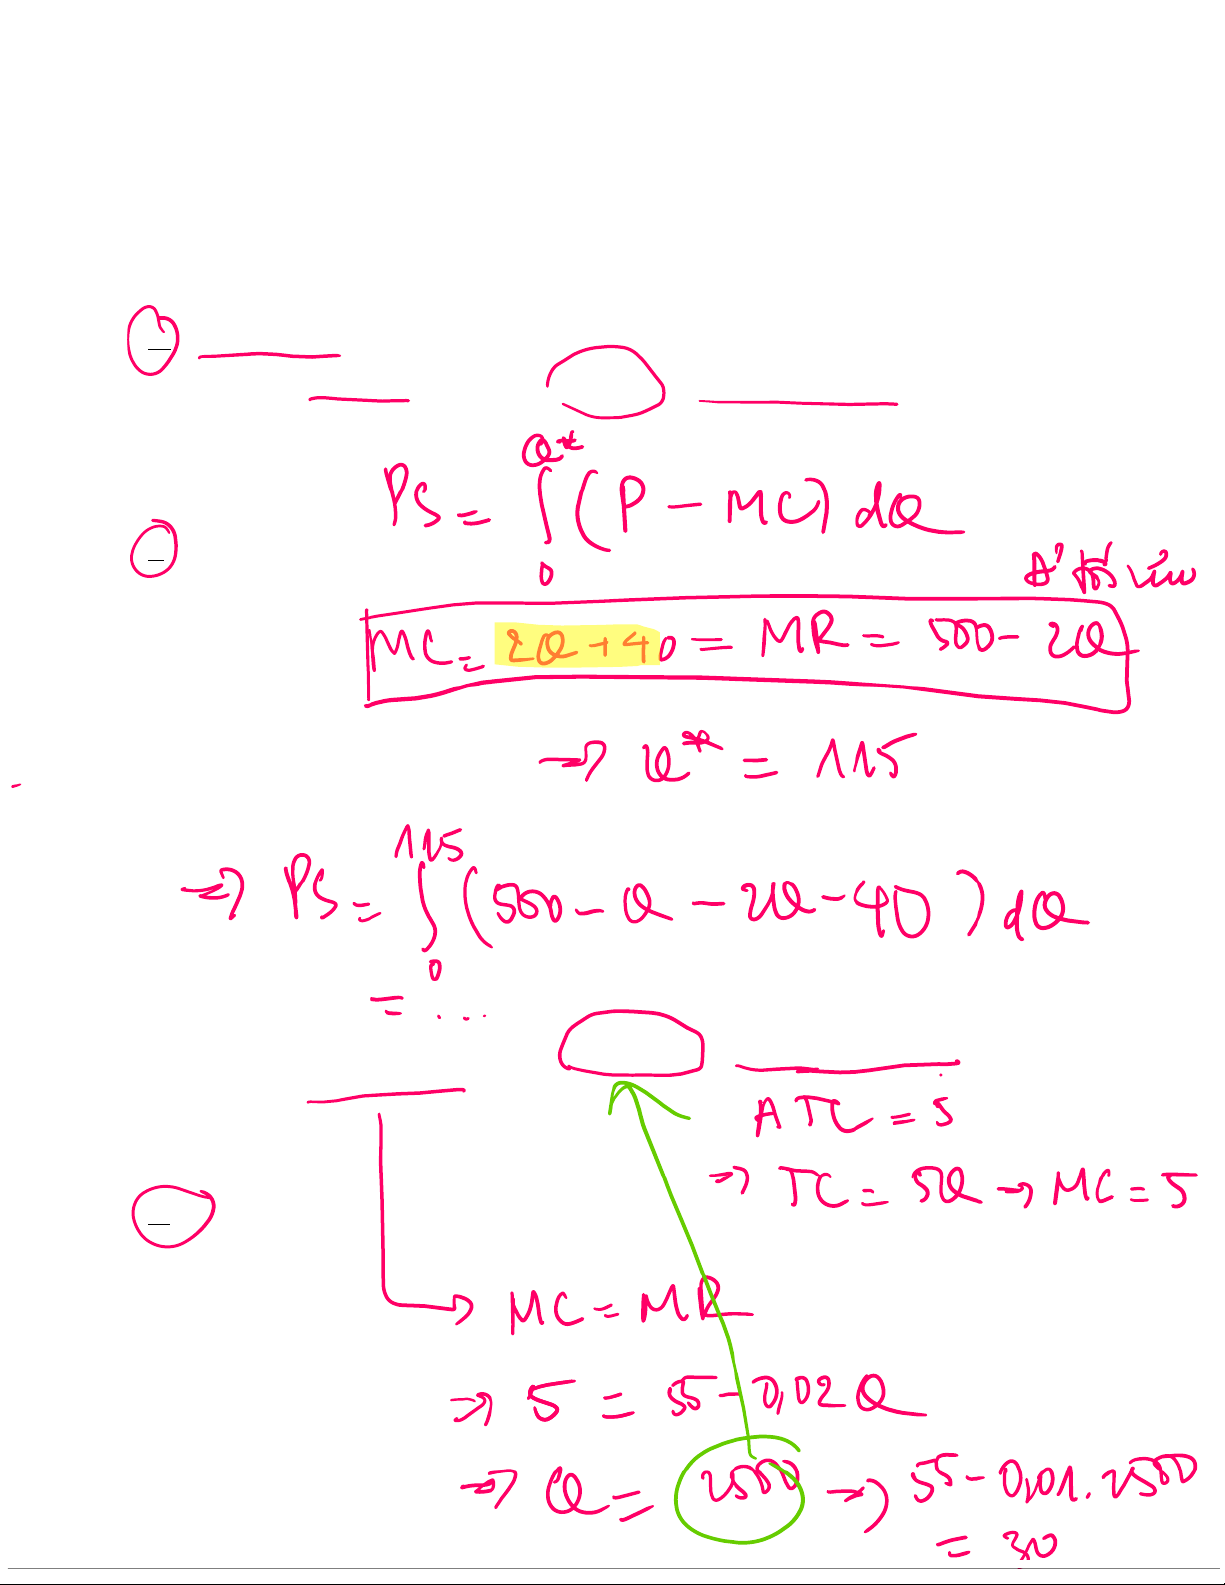 PS = ∫₀^Q* (P - MC) dQ
MC = 2Q + 40 = MR = 500 - 2Q
→ Q* = 115
→ PS = ∫₀^115 (500 - Q - 2Q - 40) dQ
= ...
ATC = 5
→ TC = 5Q → MC = 5
→ MC = MR
→ 5 = 55 - 0,02Q
→ Q = 2500 → 55 - 0,01.2500
= 30